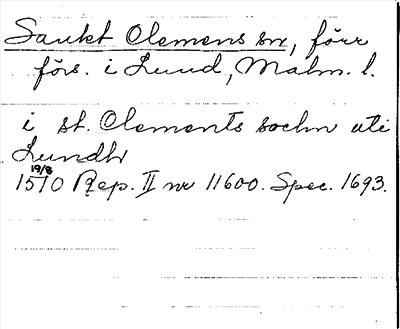 Sankt Clemens sn, förr
förs. i Lund, Malm. l.
i st. Clements sochn uti
Lundh
19/8
1510 Rep. II nr 11600. Spec. 1693.